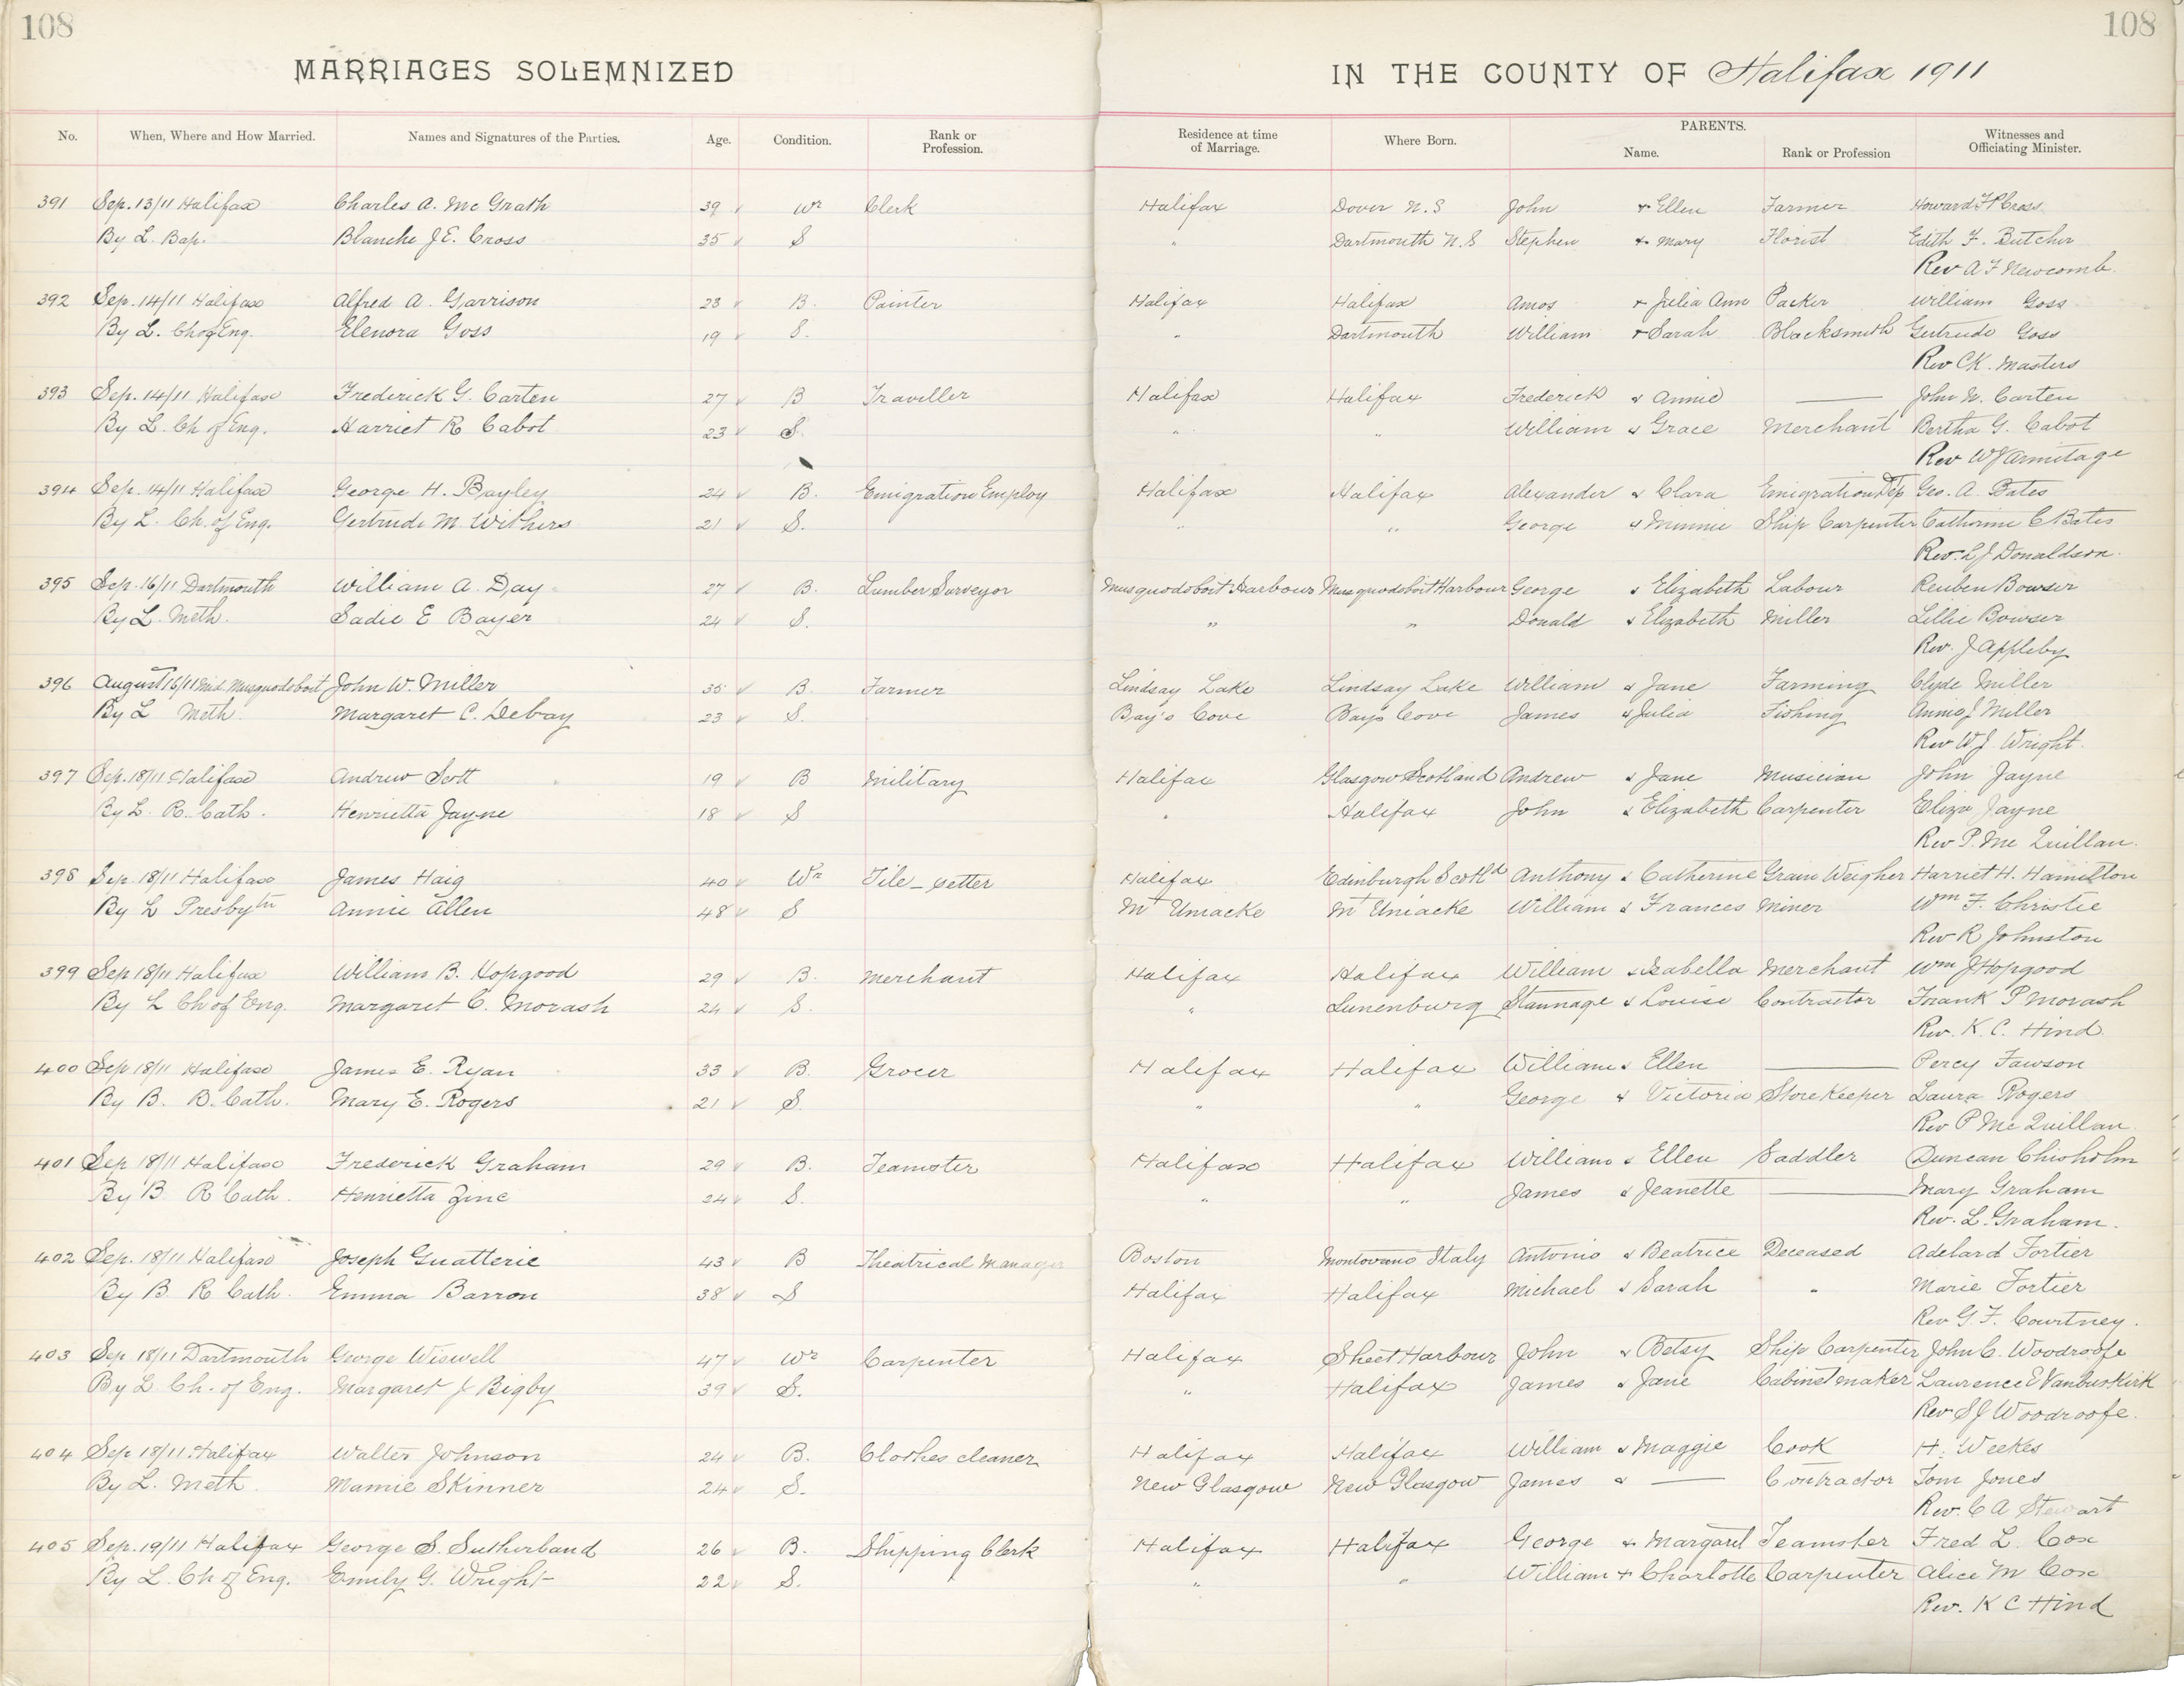 108 108
MARRIAGES SOLEMNIZED IN THE COUNTY OF Halifax 1911
No. When, Where and How Married. Names and Signatures of the Parties. Age. Condition. Rank or Profession. Residence at time of Marriage. Where Born. PARENTS. Name. Rank or Profession Witnesses and Officiating Minister.
391 Sep. 13/11 Halifax Charles A. McGrath 39 Wr Clerk Halifax Dover N.S John & Ellen Farmer Howard F P Cross
By L. Bap. Blanche J E. Cross 35 S " Dartmouth N.S Stephen & Mary Florist Edith F. Butcher
Rev A F Newcomb.
392 Sep. 14/11 Halifax Alfred A. Garrison 23 B. Painter Halifax Halifax Amos & Julia Ann Packer William Goss
By L. Ch of Eng. Elenora Goss 19 S. " Dartmouth William & Sarah Blacksmith Gertrude Goss
Rev CK. Masters
393 Sep. 14/11 Halifax Frederick G. Carten 27 B Traveller Halifax Halifax Frederick & Annie — John W. Carten
By L. Ch of Eng. Harriet R Cabot 23 S. " " William & Grace Merchant Bertha G. Cabot
Rev W J Armitage
394 Sep. 14/11 Halifax George H. Bayley 24 B. Emigration Employ Halifax Halifax Alexander & Clara Emigration Dep Geo. A. Bates
By L. Ch. of Eng. Gertrude M. Withers 21 S. " " George & Minnie Ship Carpenter Catherine C Bates
Rev. L J Donaldson.
395 Sep. 16/11 Dartmouth William A. Day 27 B. Lumber Surveyor Musquodoboit Harbour Musquodoboit Harbour George & Elizabeth Labour Reuben Bowser
By L. Meth. Sadie E Bayer 24 S. " " Donald & Elizabeth Miller Lillie Bowser
Rev. J Appleby
396 August 16/11 Mid. Musquodoboit John W. Miller 35 B. Farmer Lindsay Lake Lindsay Lake William & Jane Farming Clyde Miller
By L Meth. Margaret C. Debay 23 S. Bay's Cove Bay's Cove James & Julia Fishing Annie J Miller
Rev W J. Wright.
397 Sep. 18/11 Halifax Andrew Scott 19 B Military Halifax Glasgow Scotland Andrew & Jane Musician John Jayne
By L. R. Cath. Henrietta Jayne 18 S " Halifax John & Elizabeth Carpenter Eliza Jayne
Rev P. Mc Quillan.
398 Sep. 18/11 Halifax James Haig 40 Wr Tile-setter Halifax Edinburgh Scotld Anthony & Catherine Grain Weigher Harriet H. Hamilton
By L Presbytn Annie Allen 48 S Mt Uniacke Mt Uniacke William & Frances Miner Wm F. Christie
Rev R Johnston
399 Sep 18/11 Halifax William B. Hopgood 29 B. Merchant Halifax Halifax William & Isabella Merchant Wm J Hopgood
By L Ch of Eng. Margaret C. Morash 24 S. " Lunenburg Stannage & Louise Contractor Frank P Morash
Rev. K. C. Hind.
400 Sep 18/11 Halifax James E. Ryan 33 B. Grocer Halifax Halifax William & Ellen — Percy Fawson
By B. R. Cath. Mary E. Rogers 21 S. " " George & Victoria Storekeeper Laura Rogers
Rev P Mc Quillan.
401 Sep 18/11 Halifax Frederick Graham 29 B. Teamster Halifax Halifax William & Ellen Saddler Duncan Chisholm
By B R Cath. Henrietta Zinc 24 S. " " James & Jeanette — Mary Graham
Rev. L. Graham.
402 Sep. 18/11 Halifax Joseph Guatterie 43 B Theatrical Manager Boston Montovano Italy Antonio & Beatrice Deceased Adelard Fortier
By B R Cath. Emma Barron 38 S Halifax Halifax Michael & Sarah " Marie Fortier
Rev G. F. Courtney.
403 Sep 18/11 Dartmouth George Wiswell 47 Wr Carpenter Halifax Sheet Harbour John & Betsy Ship Carpenter John C. Woodroofe
By L. Ch. of Eng. Margaret J Bigby 39 S. " Halifax James & Jane Cabinetmaker Laurence E VanBuskirk
Rev S J Woodroofe.
404 Sep 18/11 Halifax Walter Johnson 24 B. Clothes cleaner Halifax Halifax William & Maggie Cook H. Weekes
By L. Meth. Mamie Skinner 24 S. New Glasgow New Glasgow James & — Contractor Tom Jones
Rev. C A Stewart
405 Sep. 19/11 Halifax George S. Sutherland 26 B. Shipping Clerk Halifax Halifax George & Margaret Teamster Fred L. Cox
By L. Ch of Eng. Emily G. Wright 22 S. " " William & Charlotte Carpenter Alice M Cox
Rev. K C Hind